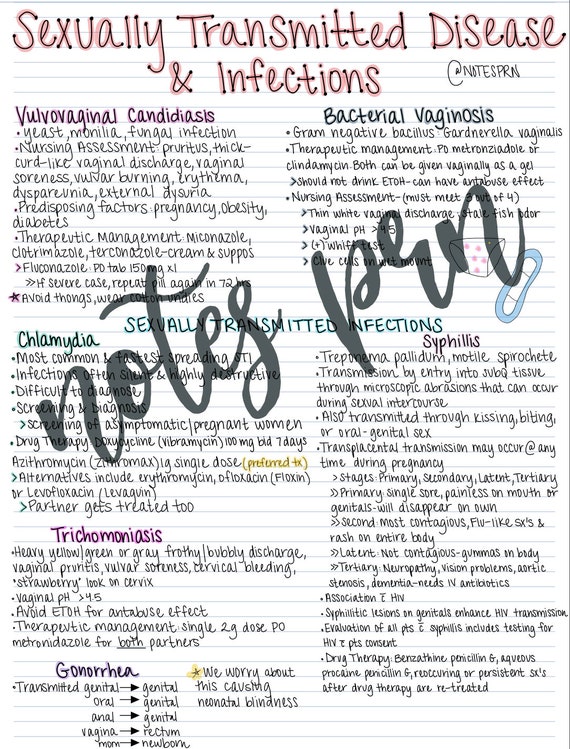 Sexually Transmitted Disease
& Infections
@NOTESPRN
Vulvovaginal Candidiasis
• yeast, monilia, fungal infection
• Nursing Assessment: pruritus, thick-
curd-like vaginal discharge, vaginal
soreness, vulvar burning, erythema,
dyspareunia, external dysuria
• Predisposing factors: pregnancy, obesity,
diabetes
• Therapeutic Management: Miconazole,
clotrimazole, terconazole-cream & suppos
> Fluconazole: PO tab 150mg x1
>> If severe case, repeat pill again in 72 hrs
* Avoid thongs, wear cotton undies
Bacterial Vaginosis
• Gram negative bacillus: Gardnerella vaginalis
• Therapeutic management: PO metronidazole or
clindamycin. Both can be given vaginally as a gel
> Should not drink ETOH- can have antabuse effect
• Nursing Assessment- (must meet 3 out of 4)
> Thin white vaginal discharge, stale fish odor
> Vaginal pH >4.5
> (+) whiff test
> Clue cells on wet mount
notes prn
SEXUALLY TRANSMITTED INFECTIONS
Chlamydia
• Most common & fastest spreading STI
• Infections often silent & highly destructive
• Difficult to diagnose
• Screening & Diagnosis
> screening of asymptomatic/pregnant women
• Drug Therapy: Doxycycline (Vibramycin) 100 mg bid 7 days
Azithromycin (Zithromax) 1g single dose (preferred tx)
> Alternatives include erythromycin, ofloxacin (Floxin)
or Levofloxacin (Levaquin)
> Partner gets treated too
Trichomoniasis
• Heavy yellow/green or gray frothy/bubbly discharge,
vaginal pruritis, vulvar soreness, cervical bleeding,
"strawberry" look on cervix
• vaginal pH >4.5
• Avoid ETOH for antabuse effect
• Therapeutic management: single 2g dose PO
metronidazole for both partners
Gonorrhea
• Transmitted genital → genital
oral → genital
anal → genital
vagina → rectum
mom → newborn
* We worry about
this causing
neonatal blindness
Syphillis
• Treponema pallidum, motile spirochete
• Transmission by entry into subQ tissue
through microscopic abrasions that can occur
during sexual intercourse
• Also transmitted through kissing, biting,
or oral-genital sex
• Transplacental transmission may occur @ any
time during pregnancy
> Stages: Primary, Secondary, Latent, Tertiary
>> Primary: single sore, painless on mouth or
genitals-will disappear on own
>> Second: most contagious, Flu-like sx's &
rash on entire body
>> Latent: Not contagious-gummas on body
>> Tertiary: Neuropathy, vision problems, aortic
stenosis, dementia-needs IV antibiotics
• Association c̄ HIV
• Syphilitic lesions on genitals enhance HIV transmission
• Evaluation of all pts c̄ syphillis includes testing for
HIV c̄ pts consent
• Drug Therapy: Benzathine penicillin G, aqueous
procaine penicillin G, reoccuring or persistent sx's
after drug therapy are re-treated